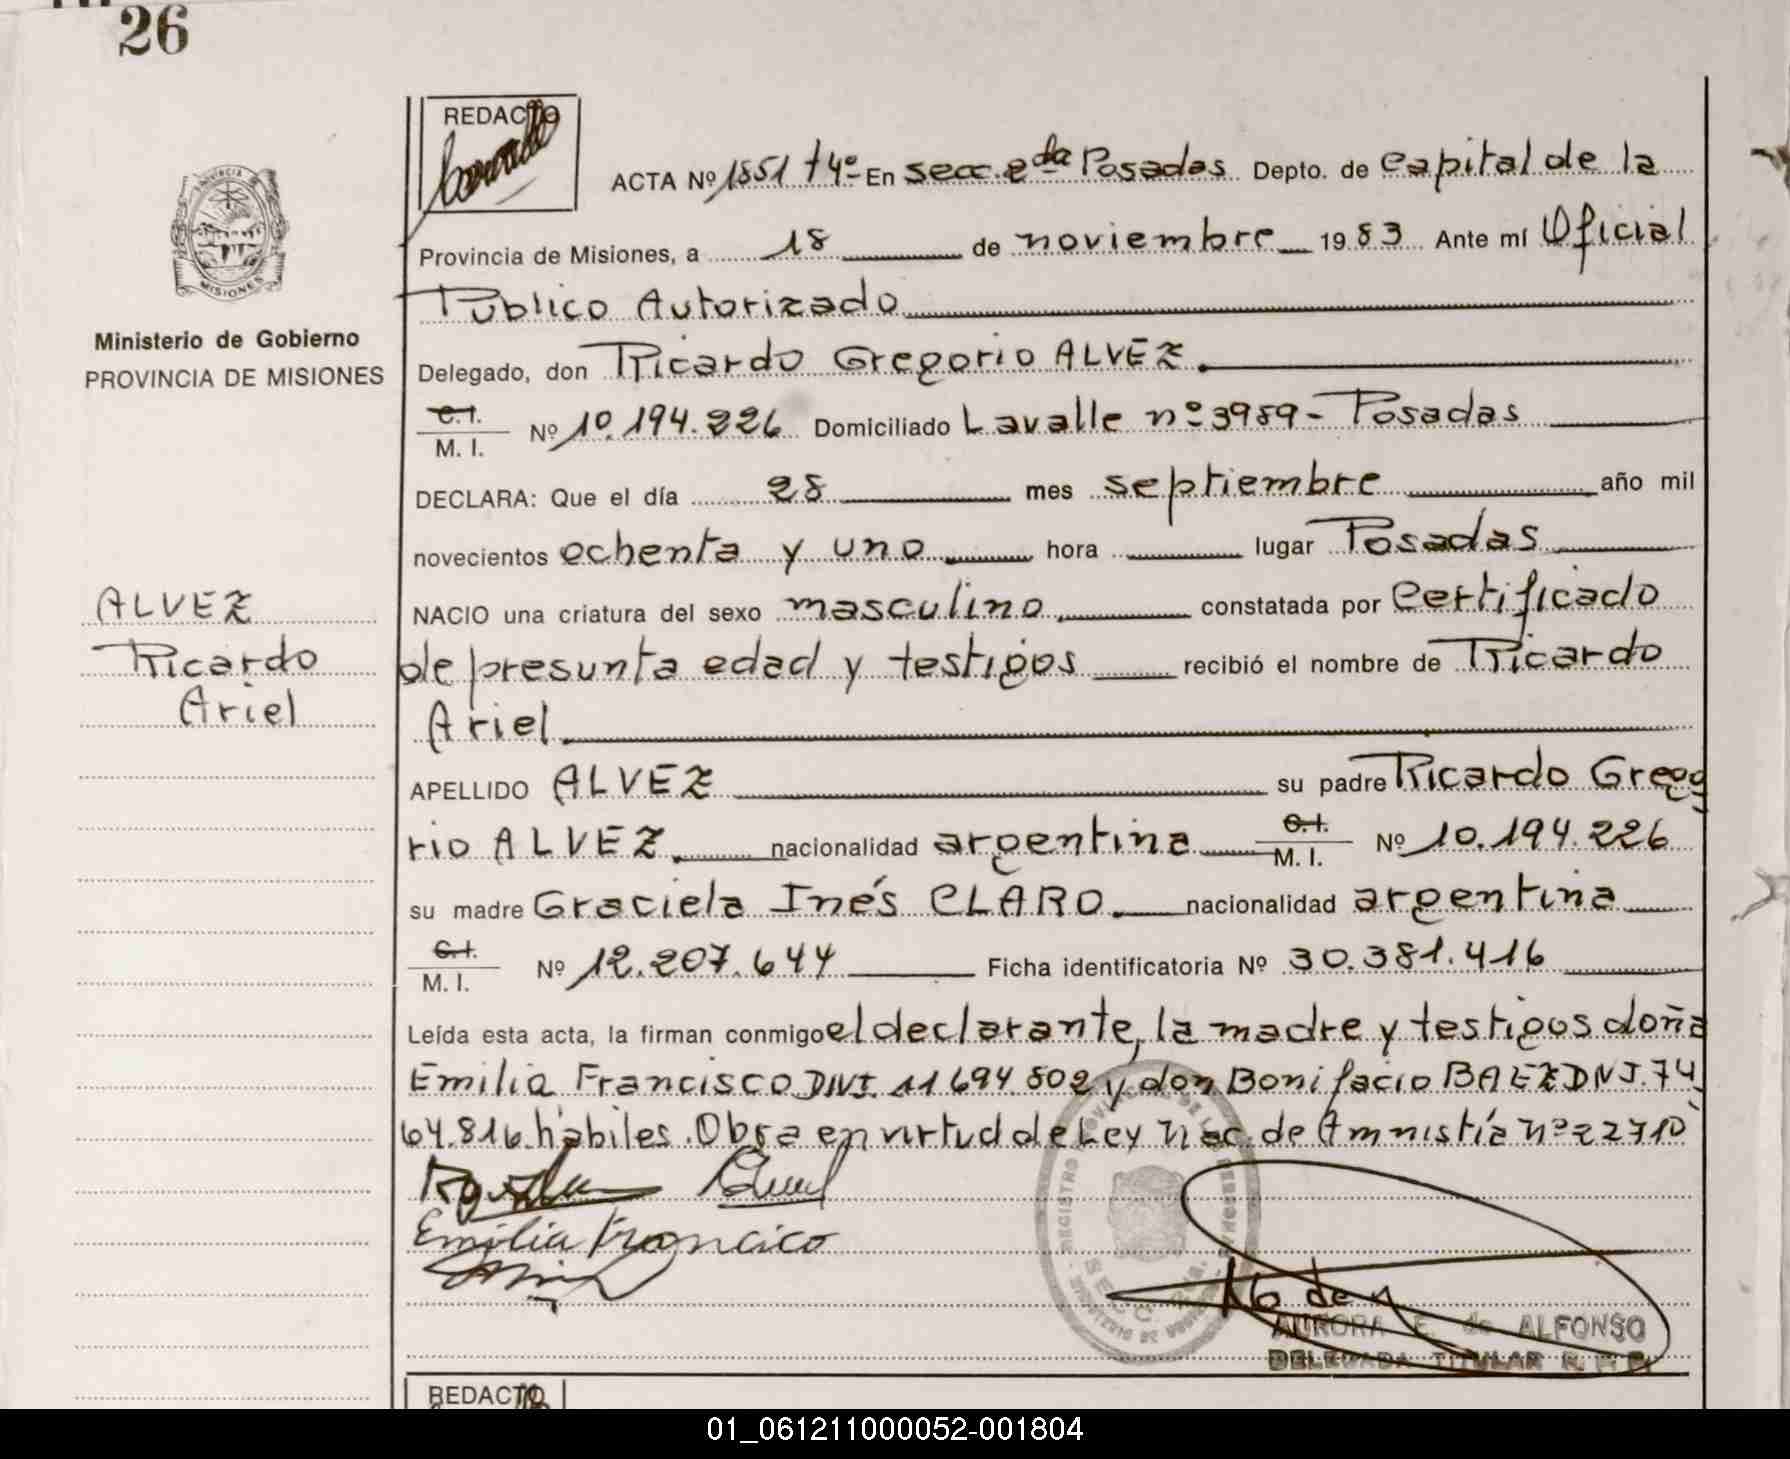 26
REDACTO
ACTA Nº 1851 tº 4º En secc. 2da Posadas Depto. de Capital de la
Provincia de Misiones, a 18 de noviembre 1983 Ante mí Oficial
Público Autorizado
Ministerio de Gobierno
PROVINCIA DE MISIONES
Delegado, don Ricardo Gregorio ALVEZ
C.I.
M. I. Nº 10.194.226 Domiciliado Lavalle nº 3989- Posadas
DECLARA: Que el día 28 mes septiembre año mil
novecientos ochenta y uno hora lugar Posadas
NACIO una criatura del sexo masculino constatada por Certificado
de presunta edad y testigos recibió el nombre de Ricardo
Ariel
ALVEZ
Ricardo
Ariel
APELLIDO ALVEZ su padre Ricardo Grego
rio ALVEZ nacionalidad argentina C.I. M. I. Nº 10.194.226
su madre Graciela Inés CLARO nacionalidad argentina
C.I.
M. I. Nº 12.207.644 Ficha identificatoria Nº 30.381.416
Leída esta acta, la firman conmigo el declarante, la madre y testigos doña
Emilia Francisco DNI. 11694.802 y don Bonifacio BAEZ DNI. 7.4
64.816 hábiles. Obra en virtud de Ley Nac. de Amnistía nº 22710
Emilia Francico
AURORA E. de ALFONSO
DELEGADA TITULAR R. P. P.
REDACTO
01_061211000052-001804